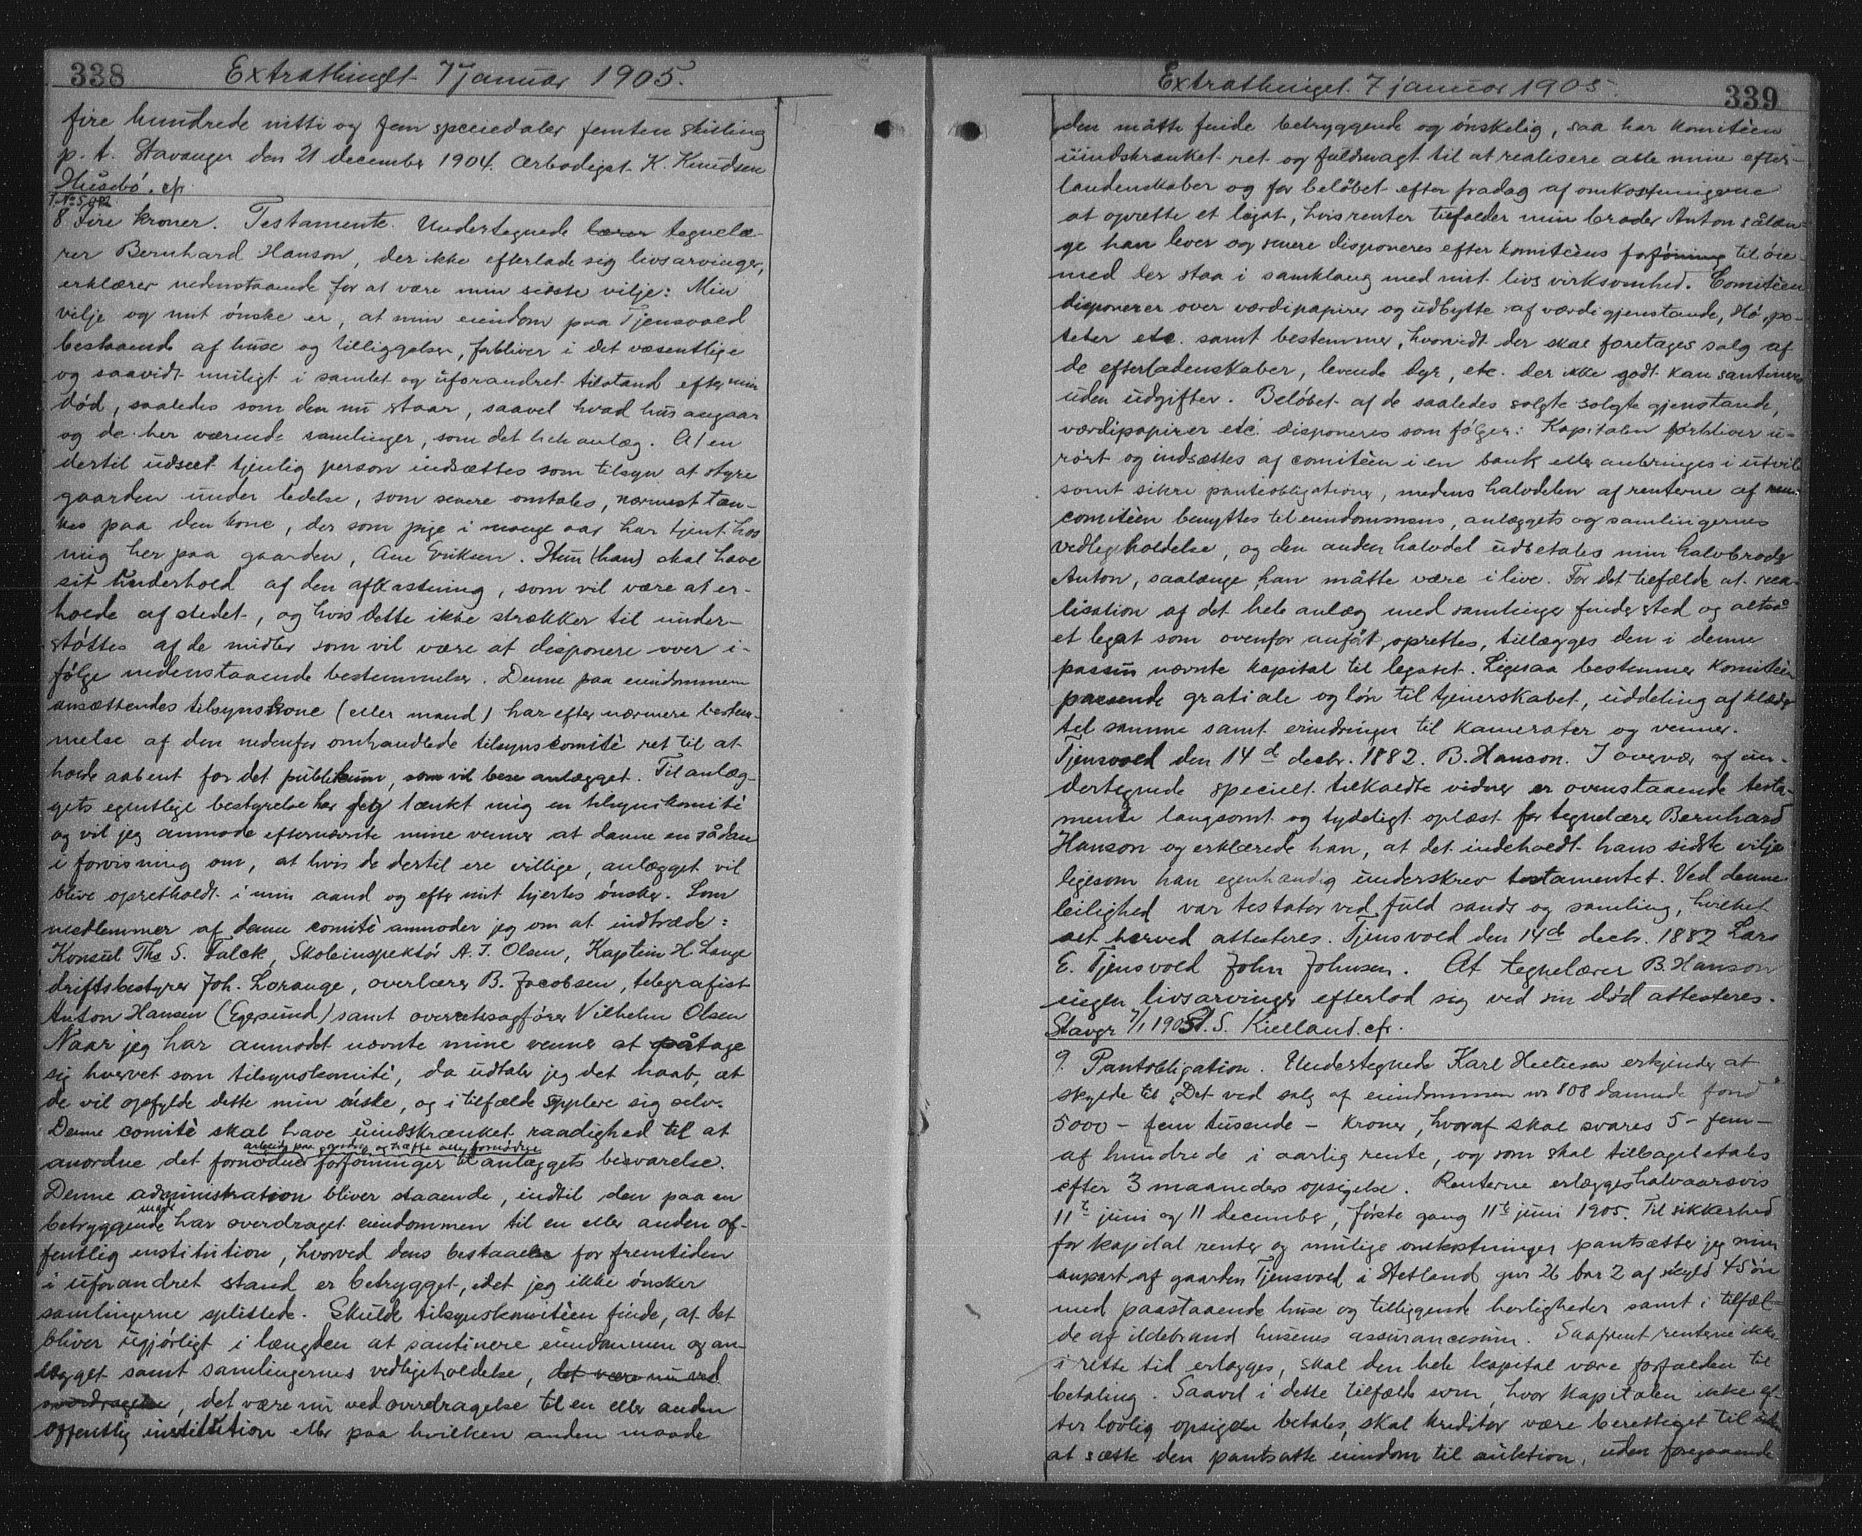 338 Extrathinget 7 januar 1905.
fire hundrede nitti og fem speciedaler femten skilling
p. t. Stavanger den 21 december 1904. Ærbødigst K. Knudsen
Husebø. cfr.
8. Fire kroner. Testamente. Undertegnede lærer tegnelæ-
rer Bernhard Hanson, der ikke efterlade sig livsarvinger,
erklærer nedenstaaende for at være min sidste vilje: Min
vilje og mit ønske er, at min eiendom paa Tjensvold
bestaaende af huse og tilliggelser, forbliver i det væsentlige
og saavidt muligt i samlet og uforandret tilstand efter min
død, saaledes som den nu staar, saavel hvad hus angaar
og de her værende samlinger, som det hele anlæg. At en
dertil udseet tjenlig person indsættes som tilsyn at styre
gaarden under ledelse, som senere omtales, nærmest tæn-
kes paa den kone, der som pige i mange aar har tjent hos
mig her paa gaarden, Ane Eriksen. Hun (han) skal have
sit underhold af den afkastning, som vil være at er-
holde af stedet, og hvis dette ikke strækker til under-
støttes af de midler som vil være at disponere over i-
følge nedenstaaende bestemmelser. Denne paa eiendommen
ansættendes tilsynskone (eller mand) har efter nærmere bestem-
melse af den nedenfor omhandlede tilsynscomitè ret til at
holde aabent for det publikum, som vil bese anlægget. Til anlæg-
gets egentlige bestyrelse har jeg tænkt mig en tilsynskomitè
og vil jeg anmode efternævnte mine venner at danne en sådan
i forvisning om, at hvis de dertil ere villige, anlægget vil
blive opretholdt i min aand og efter mit hjertes ønsker. Som
medlemmer af denne comitè anmoder jeg om at indtræde:
Konsul Ths S. Falck, Skoleinspektør A. I. Olsen, Kaptein H. Lange
driftsbestyrer Joh. Lorange, overlærer B. Jacobsen, telegrafist
Anton Hansen (Egersund) samt overretssagfører Vilhelm Olsen
Naar jeg har anmodet nævnte mine venner at påtage
sig hvervet som tilsynskomitè, da udtaler jeg det haab, at
de vil opfylde dette min ønske, og i tilfælde supplere sig selv.
Denne comitè skal have uindskrænket raadighed til at
anordne det fornødne forføininger til anlæggets besvarelse.
Denne administration bliver staaende, indtil den paa en
betryggende maade har overdraget eiendommen til en eller anden of-
fentlig institution, hvorved dens bestaaelse for fremtiden
i uforandret stand er betrygget, idet jeg ikke ønsker
samlingerne splittede. Skulde tilsynskomitèen finde, at det
bliver ugjørligt i længden at soutinere eiendommen og an-
lægget samt samlingernes vedligeholdelse, det være nu ved
overdragelse, det være nu ved overdragelse til en eller anden
offentlig institution eller paa hvilken anden maade
Extrathinget 7 januar 1905. 339
den måtte finde betryggende og ønskelig, saa har komitèen
uindskrænket ret og fuldmagt til at realisere alle mine efter-
ladenskaber og for beløbet efter fradag af omkostningerne
at oprette et legat, hvis renter tilfalder min broder Anton sålæn-
ge han lever og senere disponeres efter komitèens forføining til øie-
med der staa i samklang med mit livs virksomhed. Comitèen
disponerer over værdipapirer og udbytte af værdigjenstande, Hø, po-
teter etc. samt bestemmer, hvorvidt der skal foretages salg af
de efterladenskaber, levende dyr, etc. der ikke godt kan soutineres
uden udgifter. Beløbet af de saaledes solgte solgte gjenstande,
værdipapirer etc. disponeres som følger: Kapitalen forbliver u-
rørt og indsættes af comitèen i en bank eller anbringes i utvil-
somt sikre panteobligationer, medens halvdelen af renterne af
comitèen benyttes til eiendommens, anlæggets og samlingernes
vedligeholdelse, og den anden halvdel udbetales min halvbroder
Anton, saalænge han måtte være i live. For det tilfælde at rea-
lisation af det hele anlæg med samlinger finder sted og altså
et legat som ovenfor anført, oprettes, tillægges den i denne
passus nævnte kapital til legatet. Ligesaa bestemmer komitèen
passende gratiale og løn til tjenerskabet, uddeling af klæder
til samme samt erindringer til kamerater og venner.
Tjensvold den 14de decbr. 1882. B. Hanson. I overvær af un-
dertegnede specielt tilkaldte vidner er ovenstaaende testa-
mente langsomt og tydeligt oplæst for tegnelærer Bernhard
Hanson og erklærede han, at det indeholdt hans sidste vilje
ligesom han egenhændig underskrev testamentet. Ved denne
leilighed var testator ved fuld sands og samling, hvilket
alt herved attesteres. Tjensvold den 14de decbr. 1882 Lars
E. Tjensvold John Johnsen. At tegnelærer B. Hanson
ingen livsarvinger efterlod sig ved sin død attesteres.
Stavgr 7/1 1905. S. Kielland. cfr.
9. Pantobligation. Undertegnede Karl erkjender at
skylde til „Det ved salg af eiendommen no 808 dannede fond"
5000 – fem tusende – kroner, hvoraf skal svares 5 – fem –
af hundrede i aarlig rente, og som skal tilbagebetales
efter 3 maaneders opsigelse. Renterne erlægges halvaarsvis
11te juni og 11 december, første gang 11te juni 1905. Til sikkerhed
for kapital renter og mulige omkostninger pantsætter jeg min
anpart af gaarden Tjensvold i Hetland gnr 26 bnr 2 af skyld 45 øre
med paastaaende huse og tilliggende herligheder samt i tilfæl-
de af ildebrand husenes assurancesum. Saafremt renterne ikke
i rette tid erlægges, skal den hele kapital være forfalden til
betaling. Saavel i dette tilfælde som, hvor kapitalen ikke ef-
ter lovlig opsigelse betales, skal kreditor være berettiget til
at sætte den pantsatte eiendom til auktion, uden foregaaende